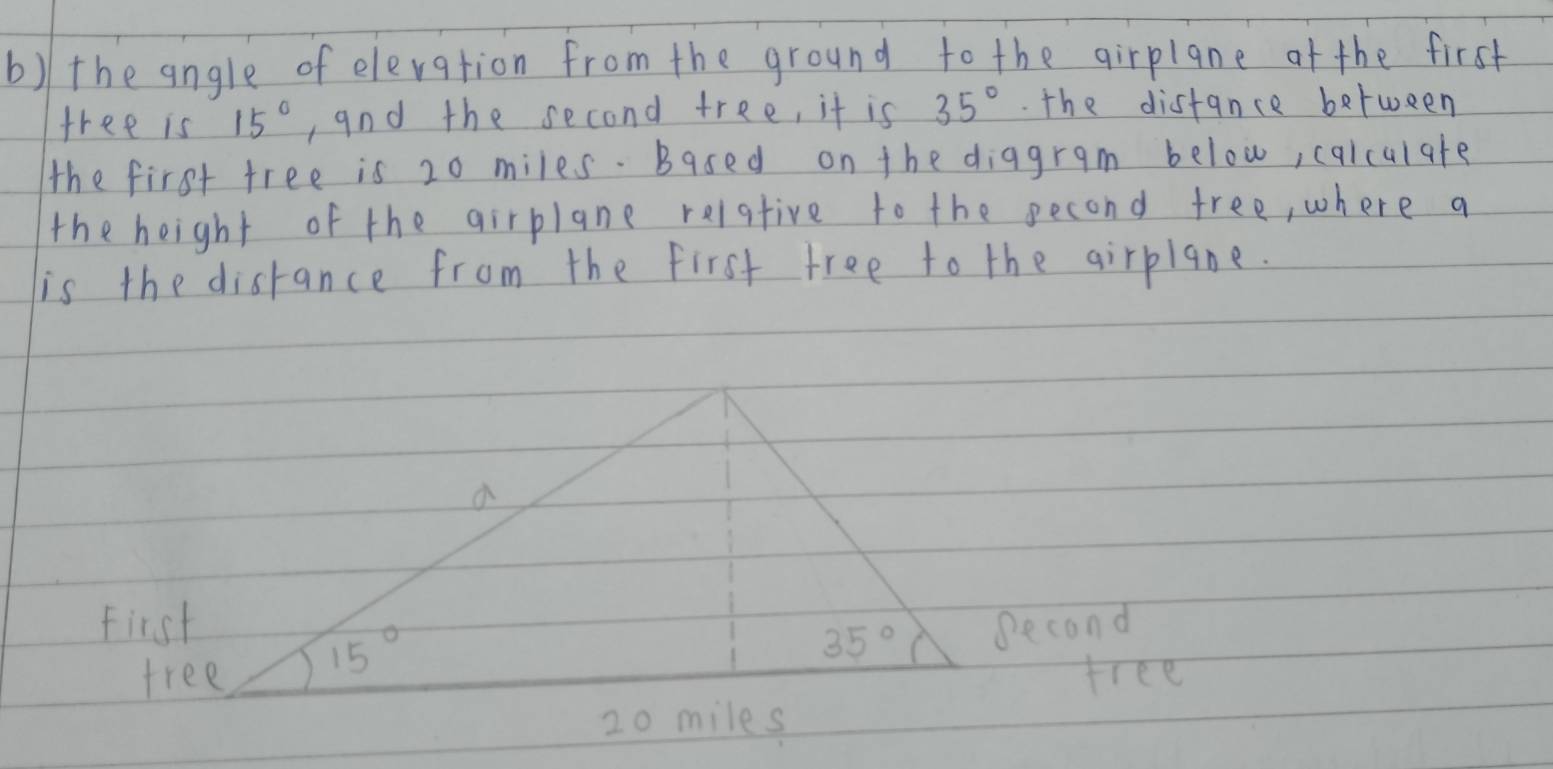 b) the angle of elevation from the ground to the airplane at the first
tree is 15°, and the second tree, it is 35°. the distance between
the first tree is 20 miles. Based on the diagram below, calculate
the height of the airplane relative to the second tree, where a
is the distance from the first tree to the airplane.
a
First
tree
15°
35°
Second
tree
20 miles